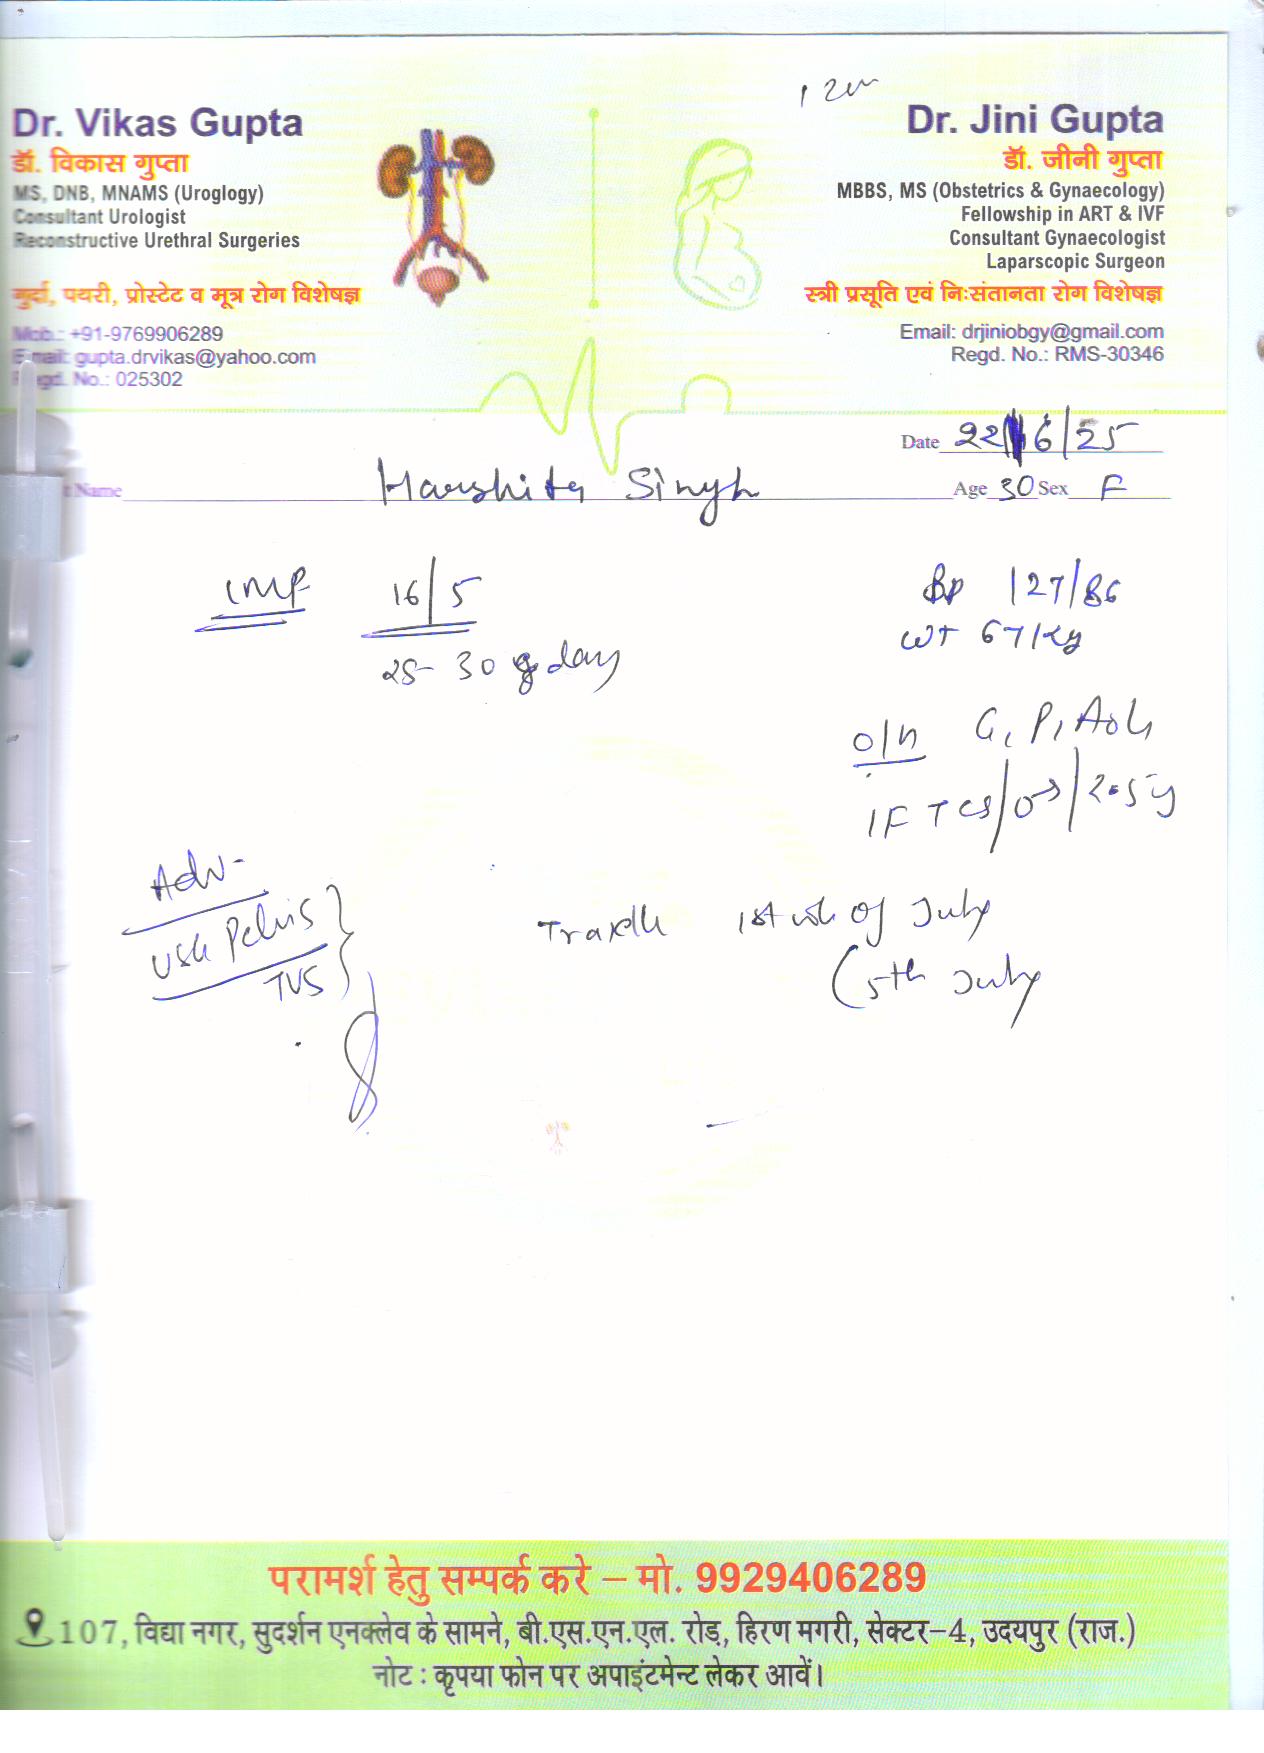 Dr. Vikas Gupta
डॉ. विकास गुप्ता
MS, DNB, MNAMS (Uroglogy)
Consultant Urologist
Reconstructive Urethral Surgeries
गुर्दा, पथरी, प्रोस्टेट व मूत्र रोग विशेषज्ञ
Mob.: +91-9769906289
Email: gupta.drvikas@yahoo.com
Regd. No.: 025302
Dr. Jini Gupta
डॉ. जीनी गुप्ता
MBBS, MS (Obstetrics & Gynaecology)
Fellowship in ART & IVF
Consultant Gynaecologist
Laparscopic Surgeon
स्त्री प्रसूति एवं निःसंतानता रोग विशेषज्ञ
Email: drjiniobgy@gmail.com
Regd. No.: RMS-30346
Date 22/6/25
Name Harshita Singh Age 30 Sex F
LMP 16/5
28-30 days
BP 127/86
WT 67 kg
O/H G1 P1 A0 L1
1F TCS/ /2.5y
Adv-
USG Pelvis
TVS
Travel 1st wk of July
(5th July
परामर्श हेतु सम्पर्क करे – मो. 9929406289
107, विद्या नगर, सुदर्शन एनक्लेव के सामने, बी.एस.एन.एल. रोड़, हिरण मगरी, सेक्टर-4, उदयपुर (राज.)
नोट : कृपया फोन पर अपाइंटमेन्ट लेकर आवें।